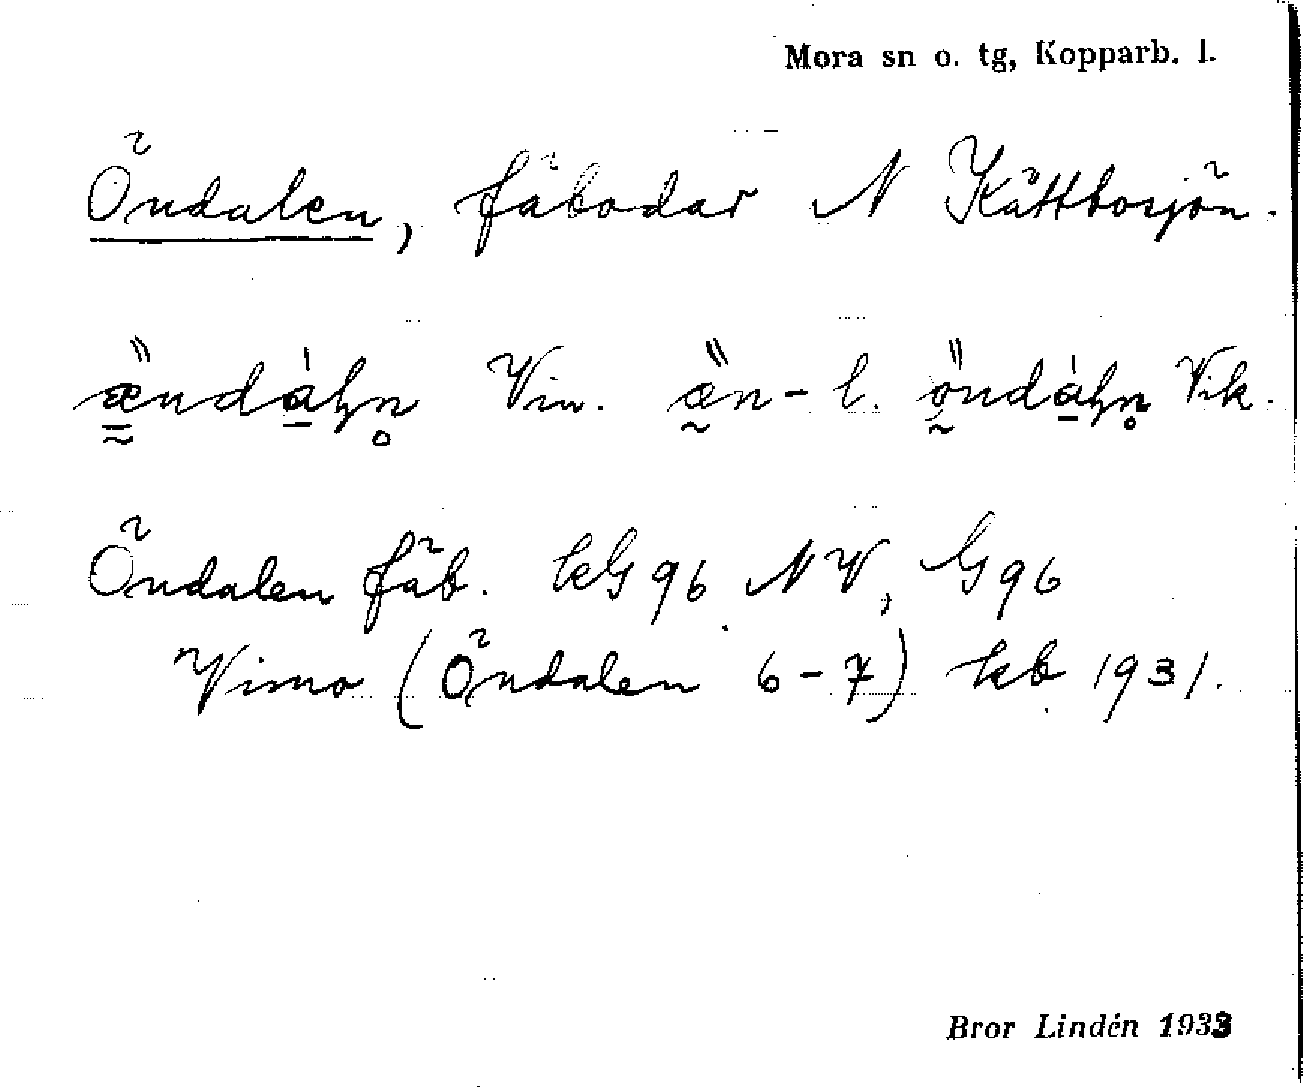 Mora sn o. tg, Kopparb. l.
Öndalen, fäbodar N Kättbosjön.
æ̀ndàļn̥ Vin. æ̀n- l. ö̀ndàļn̥ Vik.
Öndalen fäb. kG 96 NV, G 96
Vimo (Öndalen 6-7) kb 1931.
Bror Lindén 1933